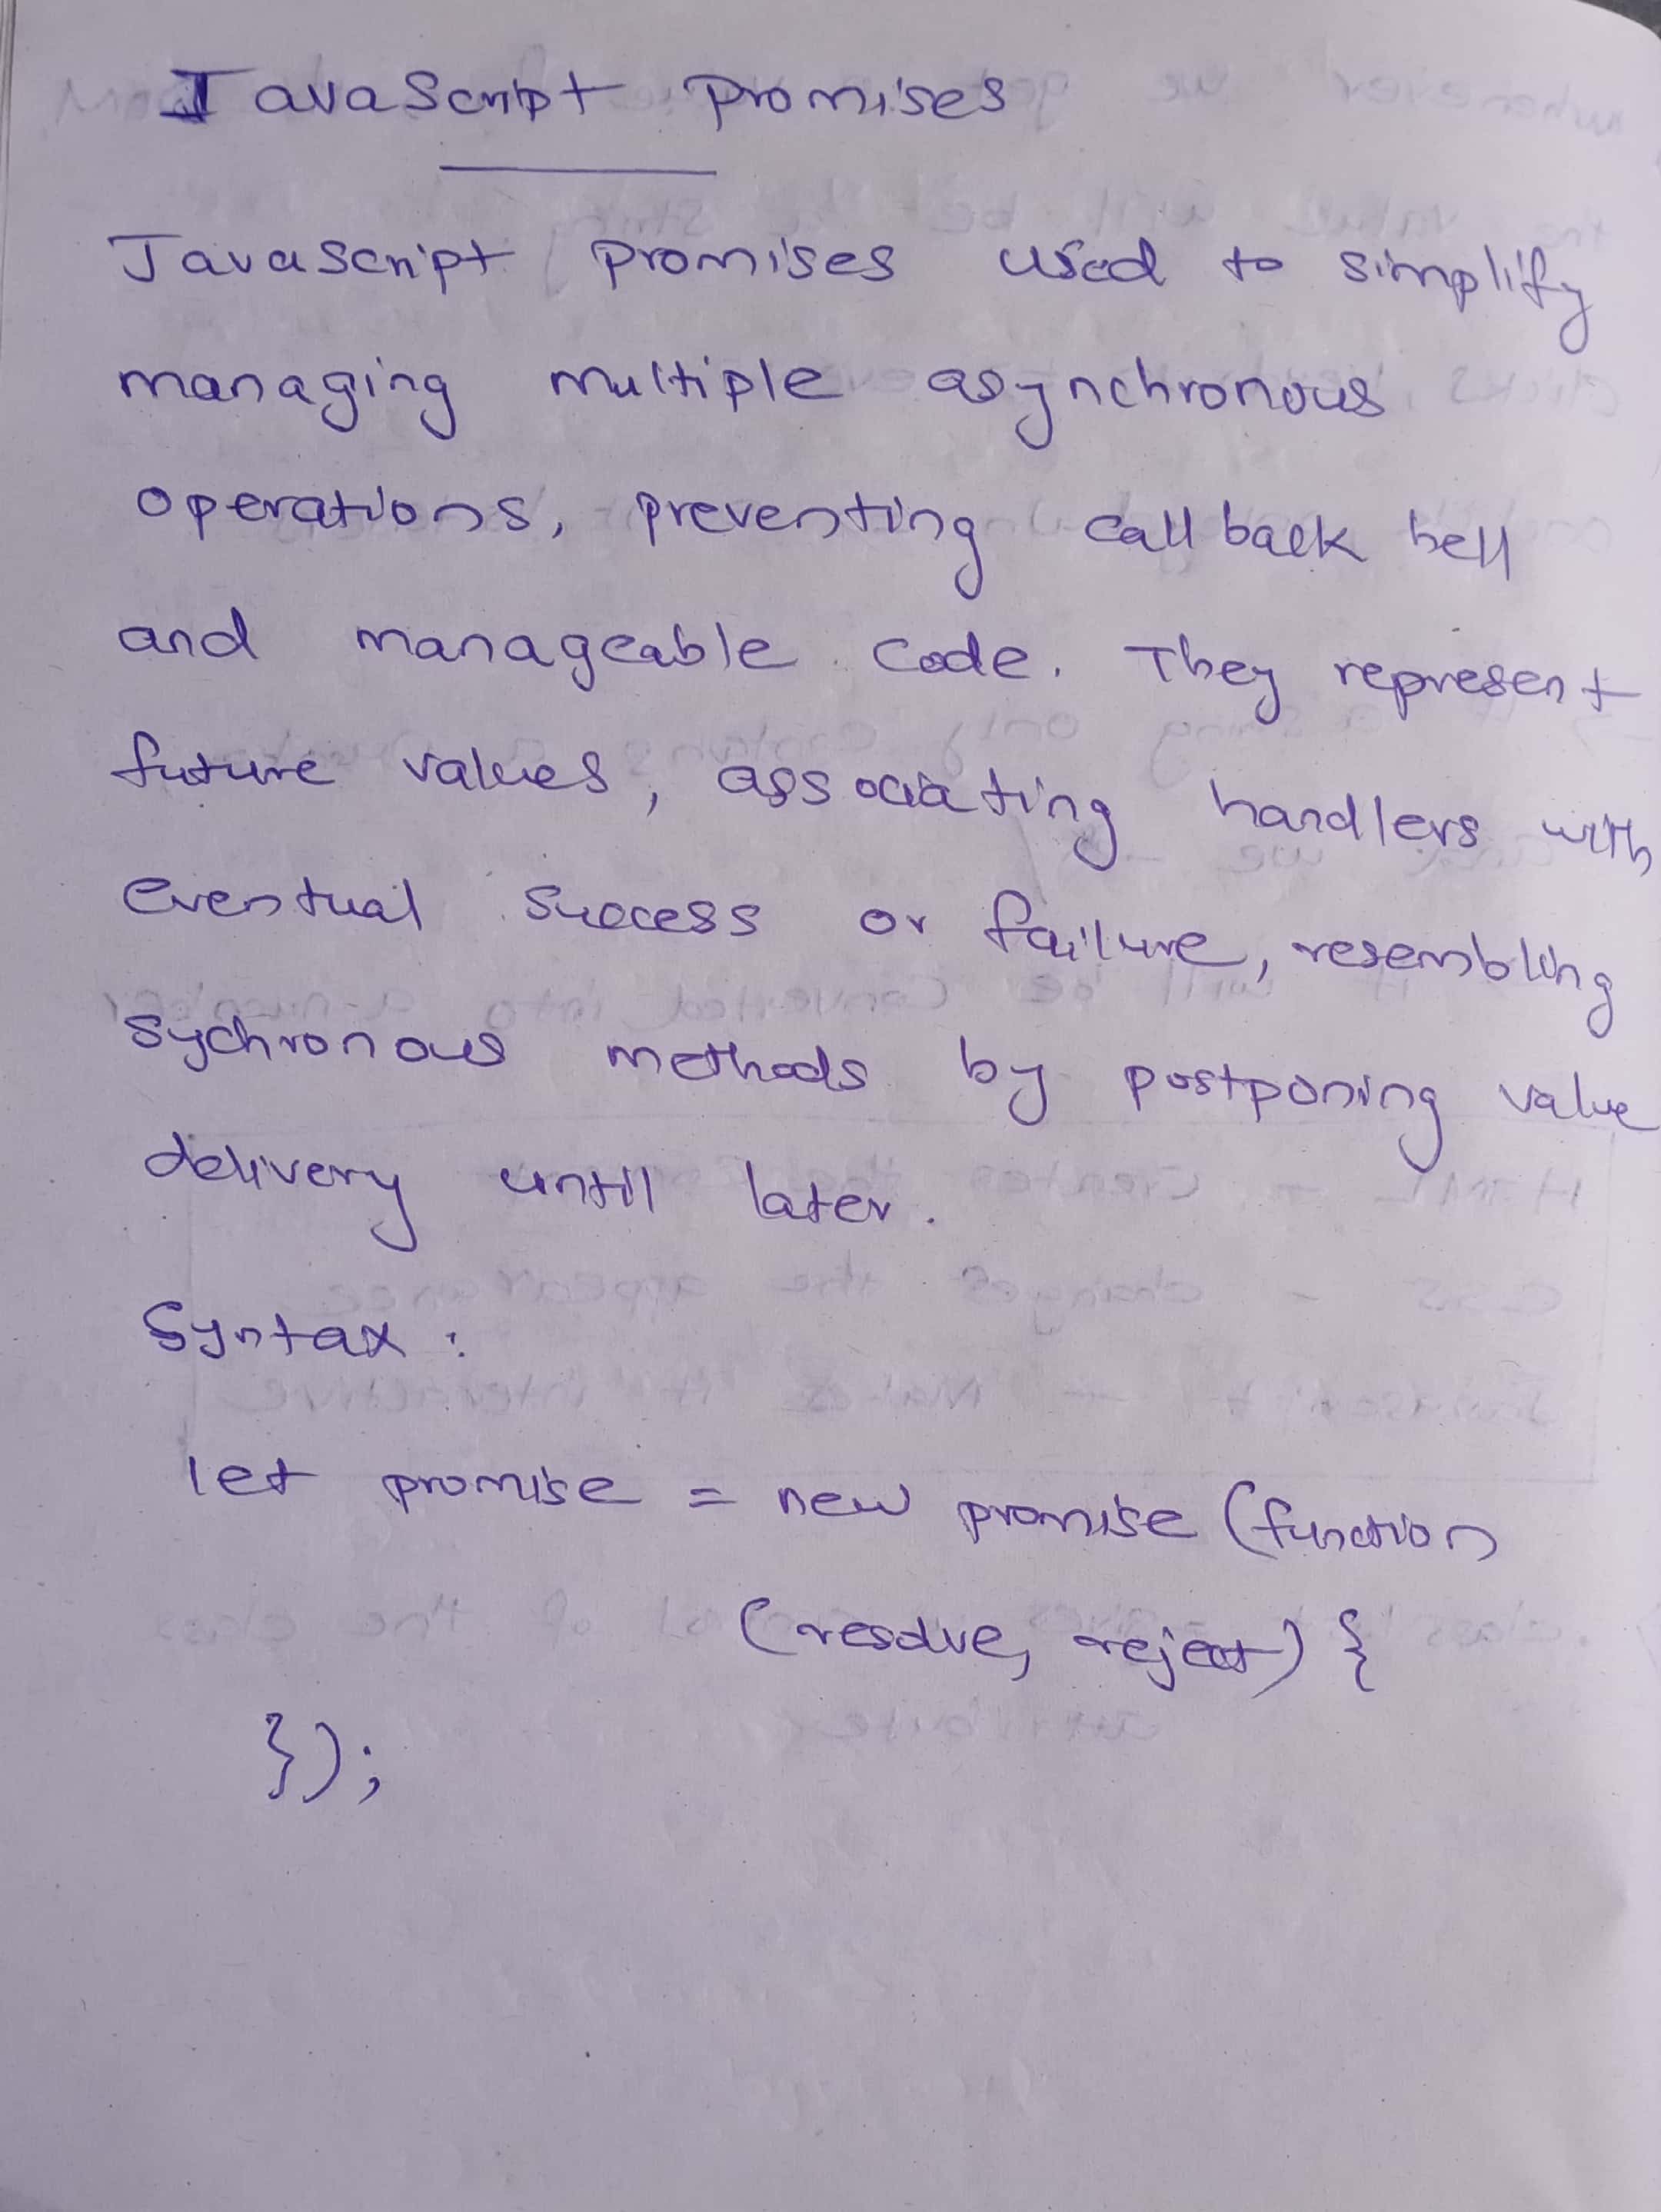 JavaScript Promises
Javascript promises used to simplify
managing multiple asynchronous
operations, preventing callback hell
and manageable code. They represent
future values, associating handlers with
eventual success or failure, resembling
sychronous methods by postponing value
delivery until later.
Syntax:
let promise = new promise (function
(resolve, reject) {
});